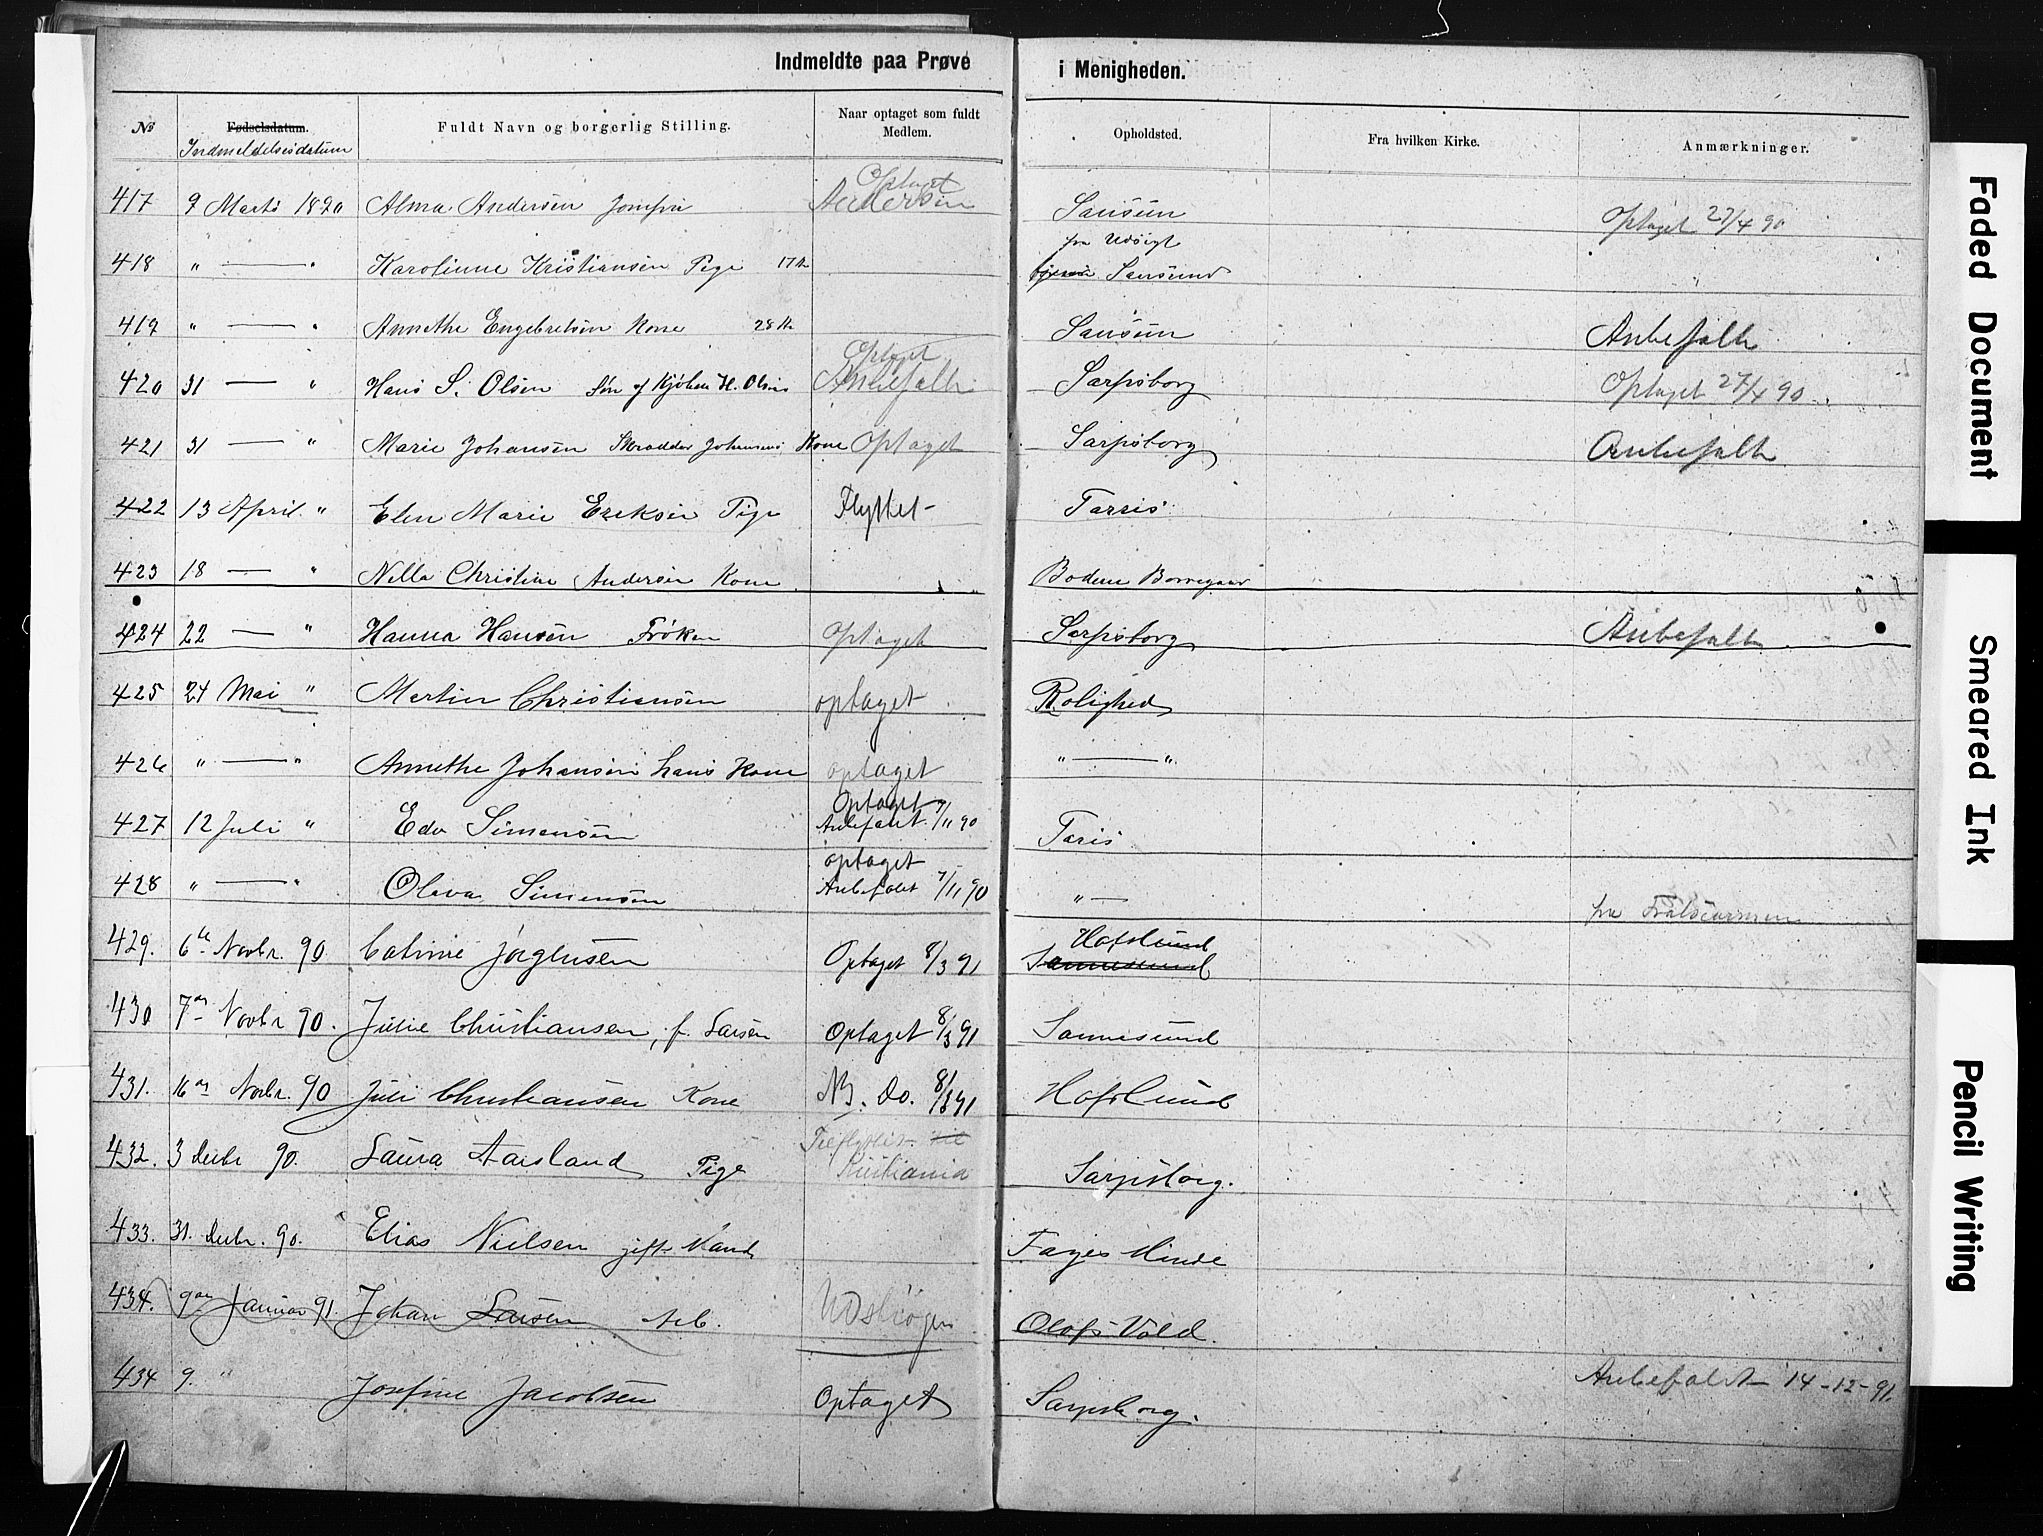 Indmeldte paa Prøve i Menigheden.
№ Fødselsdatum. Fuldt Navn og borgerlig Stilling. Naar optaget som fuldt Medlem. Opholdsted. Fra hvilken Kirke. Anmærkninger.
Indmeldelsesdatum
417 9 Marts 1890 Alma Andersen Jomfru Optaget Andersen Sansun Optaget 27/4 90
418 " — " Karolinne Kristiansen Pige 17 Kr fra Udsigt Sansund "
419 " — " Annethe Engebretsen Kone 28 Kr Sansun Anbefalt
420 31 — " Hans S. Olsen Søn af Kjøbm H. Olsens Optaget Anbefalt Sarpsborg Optaget 27/4 90
421 31 — " Marie Johansen Skrædder Johansens Kone Optaget Sarpsborg Anbefalt
422 13 April " Elen Marie Eriksen Pige Flyttet Tarris
423 18 — " Nilla Christine Andersen Kone Bodene Borregaar
424 22 — " Hanna Hansen Frøken optaget Sarpsborg Anbefalt
425 24 Mai " Martin Christiansen optaget Rolighed
426 " — " Annethe Johansen hans Kone optaget " — "
427 12 Juli " Edv Simensen Optaget Anbefalet 7/11 90 Taris
428 " — " Oleva Simensen optaget Anbefalet 7/11 90 " —
fra Frelsearmeen
429. 6te Novbr. 90 Catrine Jørgensen Optaget 8/3 91 Hafslund Sannesund
430 7de Novbr 90. Julie Christiansen, f. Larsen Optaget 8/3 91 Sannesund
431. 16de Novbr. 90 Juli Christiansen Kone NB. Do. 8/3 91 Hafslund
432. 3 Decbr 90. Laura Aarsland Pige Tilflyttet til Kristiania Sarpsborg.
433. 31. Decbr. 90. Elias Nielsen gift Mand Fages Minde
434. 9de Januar 91. Johan Larsen Arb. Udstrøgen Olafs Vold.
434 9. " Josefine Jacobsen Optaget Sarpsborg. Anbefalet 14-12-91.
Faded Document
Smeared Ink
Pencil Writing